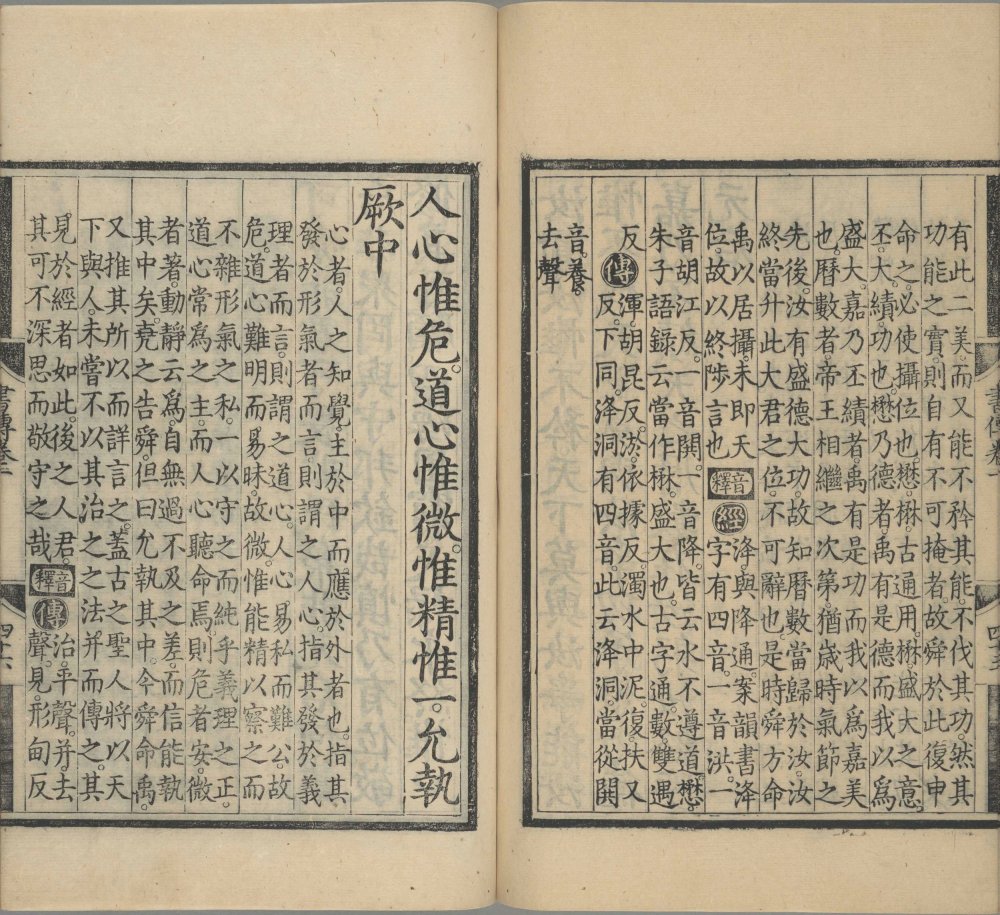 有此二美而又能不矜其能。不伐其功。然其
功能之實。則自有不可掩者。故舜於此復申
命之。必使攝位也。懋。楙古通用。楙盛大之意。
丕。大。績。功也。懋乃德者。禹有是德而我以爲
盛大。嘉乃丕績者。禹有是功而我以爲嘉美
也。曆數者。帝王相繼之次第。猶歲時氣節之
先後。汝有盛德大功。故知曆數當歸於汝。汝
終當升此大君之位。不可辭也。是時舜方命
禹以居攝。未即天
位。故以終陟言也 音釋 經 洚與降通。案韻書洚
字有四音。一音洪。一
音胡江反。一音閧。一音降。皆云水不遵道。懋。
朱子語錄云。當作楙。盛大也。古字通。數雙遇
反。 傳 渾。胡昆反。淤。依據反。濁水中泥。復扶又
反。下同。洚洞有四音。此云洚洞。當從閧
音。養。
去聲
人心惟危。道心惟微。惟精惟一。允執
厥中
心者。人之知覺。主於中而應於外者也。指其
發於形氣者而言。則謂之人心。指其發於義
理者而言。則謂之道心。人心易私而難公。故
危。道心難明而易昧。故微。惟能精以察之。而
不雜形氣之私。一以守之。而純乎義理之正。
道心常爲之主。而人心聽命焉。則危者安。微
者著。動靜云爲。自無過不及之差。而信能執
其中矣。堯之告舜。但曰允執其中。今舜命禹。
又推其所以而詳言之。蓋古之聖人。將以天
下與人。未嘗不以其治之之法。并而傳之。其
見於經者如此。後之人君。
其可不深思而敬守之哉 音釋 傳 治。平聲。并。去
聲。見。形甸反